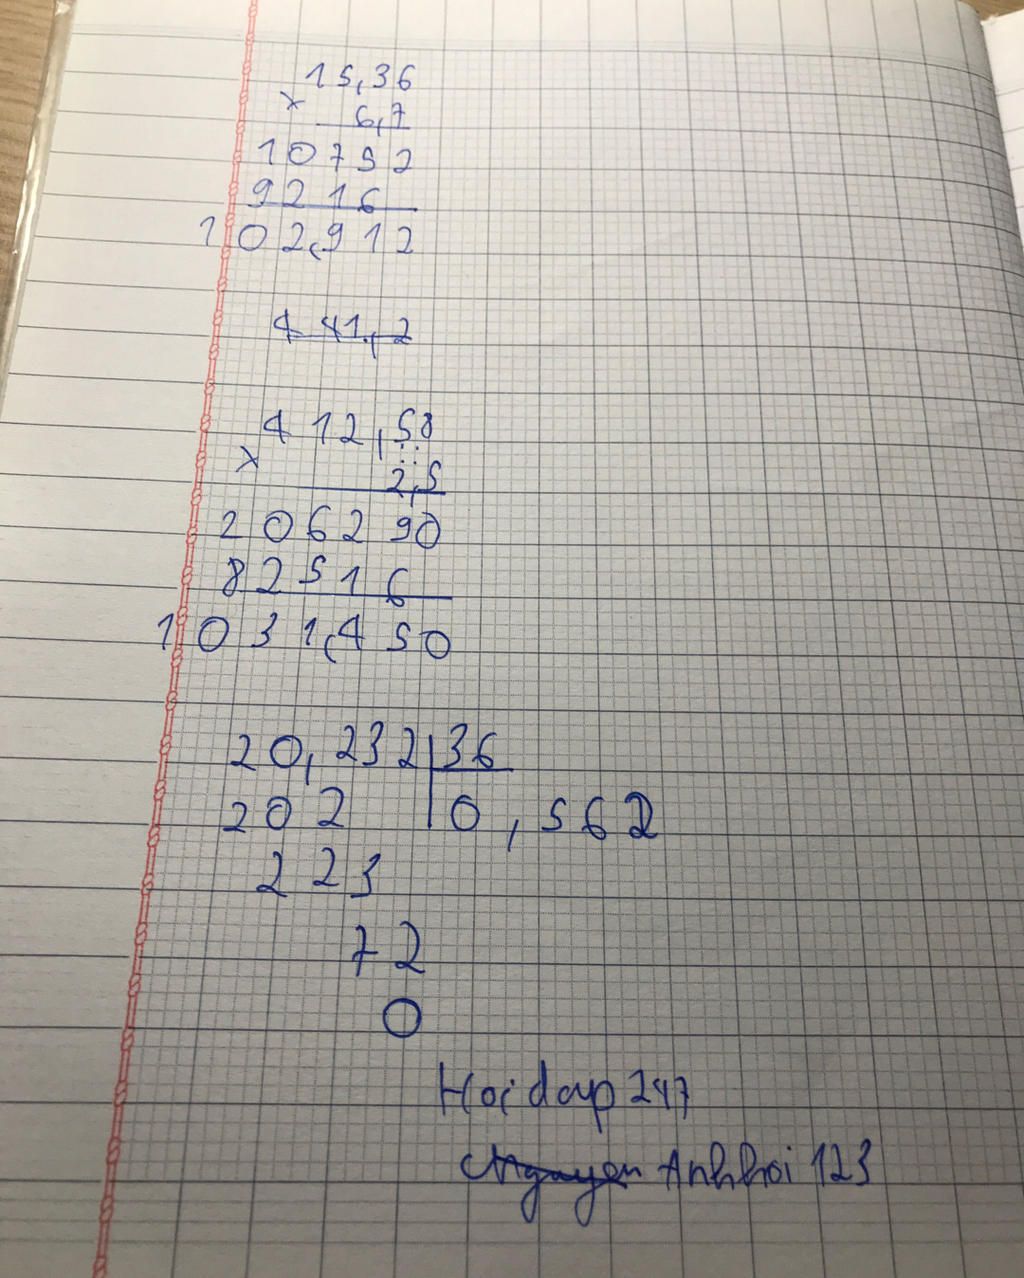 15,36
×
6,7
10752
9216
102,912
441,2
412,58
×
2,5
206290
82516
1031,450
20,232 36
202 0,562
223
72
0
Hoidap247
Nguyen Anhhoi123